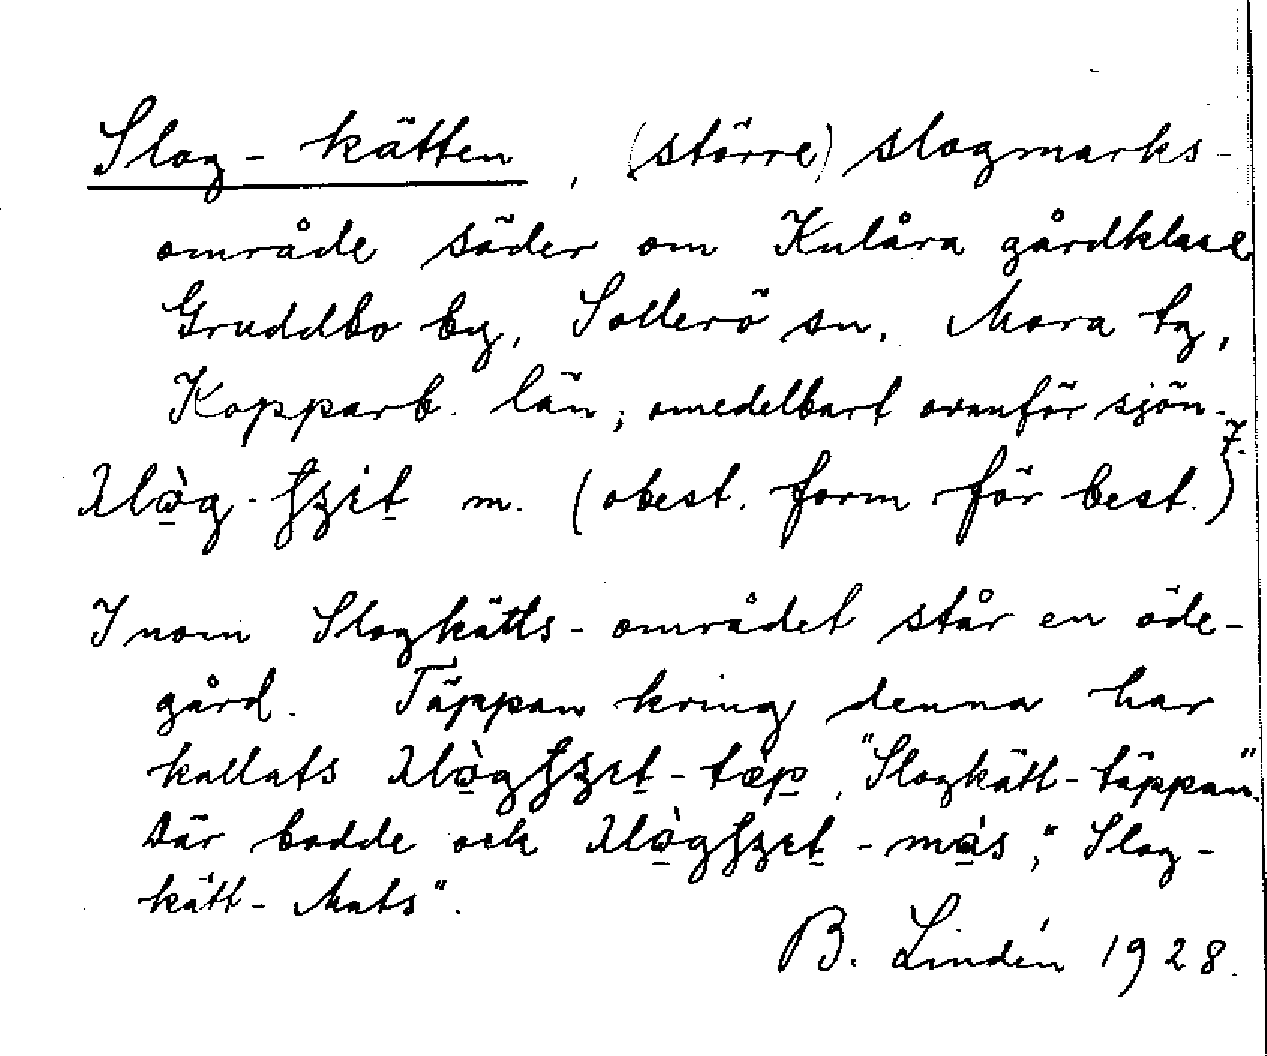 Slog-kätten, (större) slogmarks-
område söder om Kulåra gårdklase
Gruddbo by, Sollerö sn. Mora tg,
Kopparb. län; omedelbart ovanför sjön.
m. (obest. form för best.)
Inom Slogkätts-området står en öde-
gård. Täppan kring denna har
kallats "Slogkätt-täppan".
Där bodde ock "Slog-
kätt-Mats".
B. Lindén 1928.